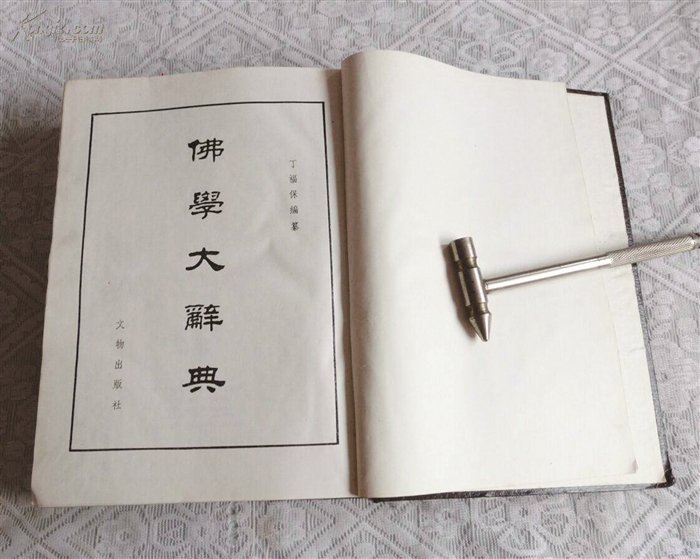 丁福保編纂
佛學大辭典
文物出版社